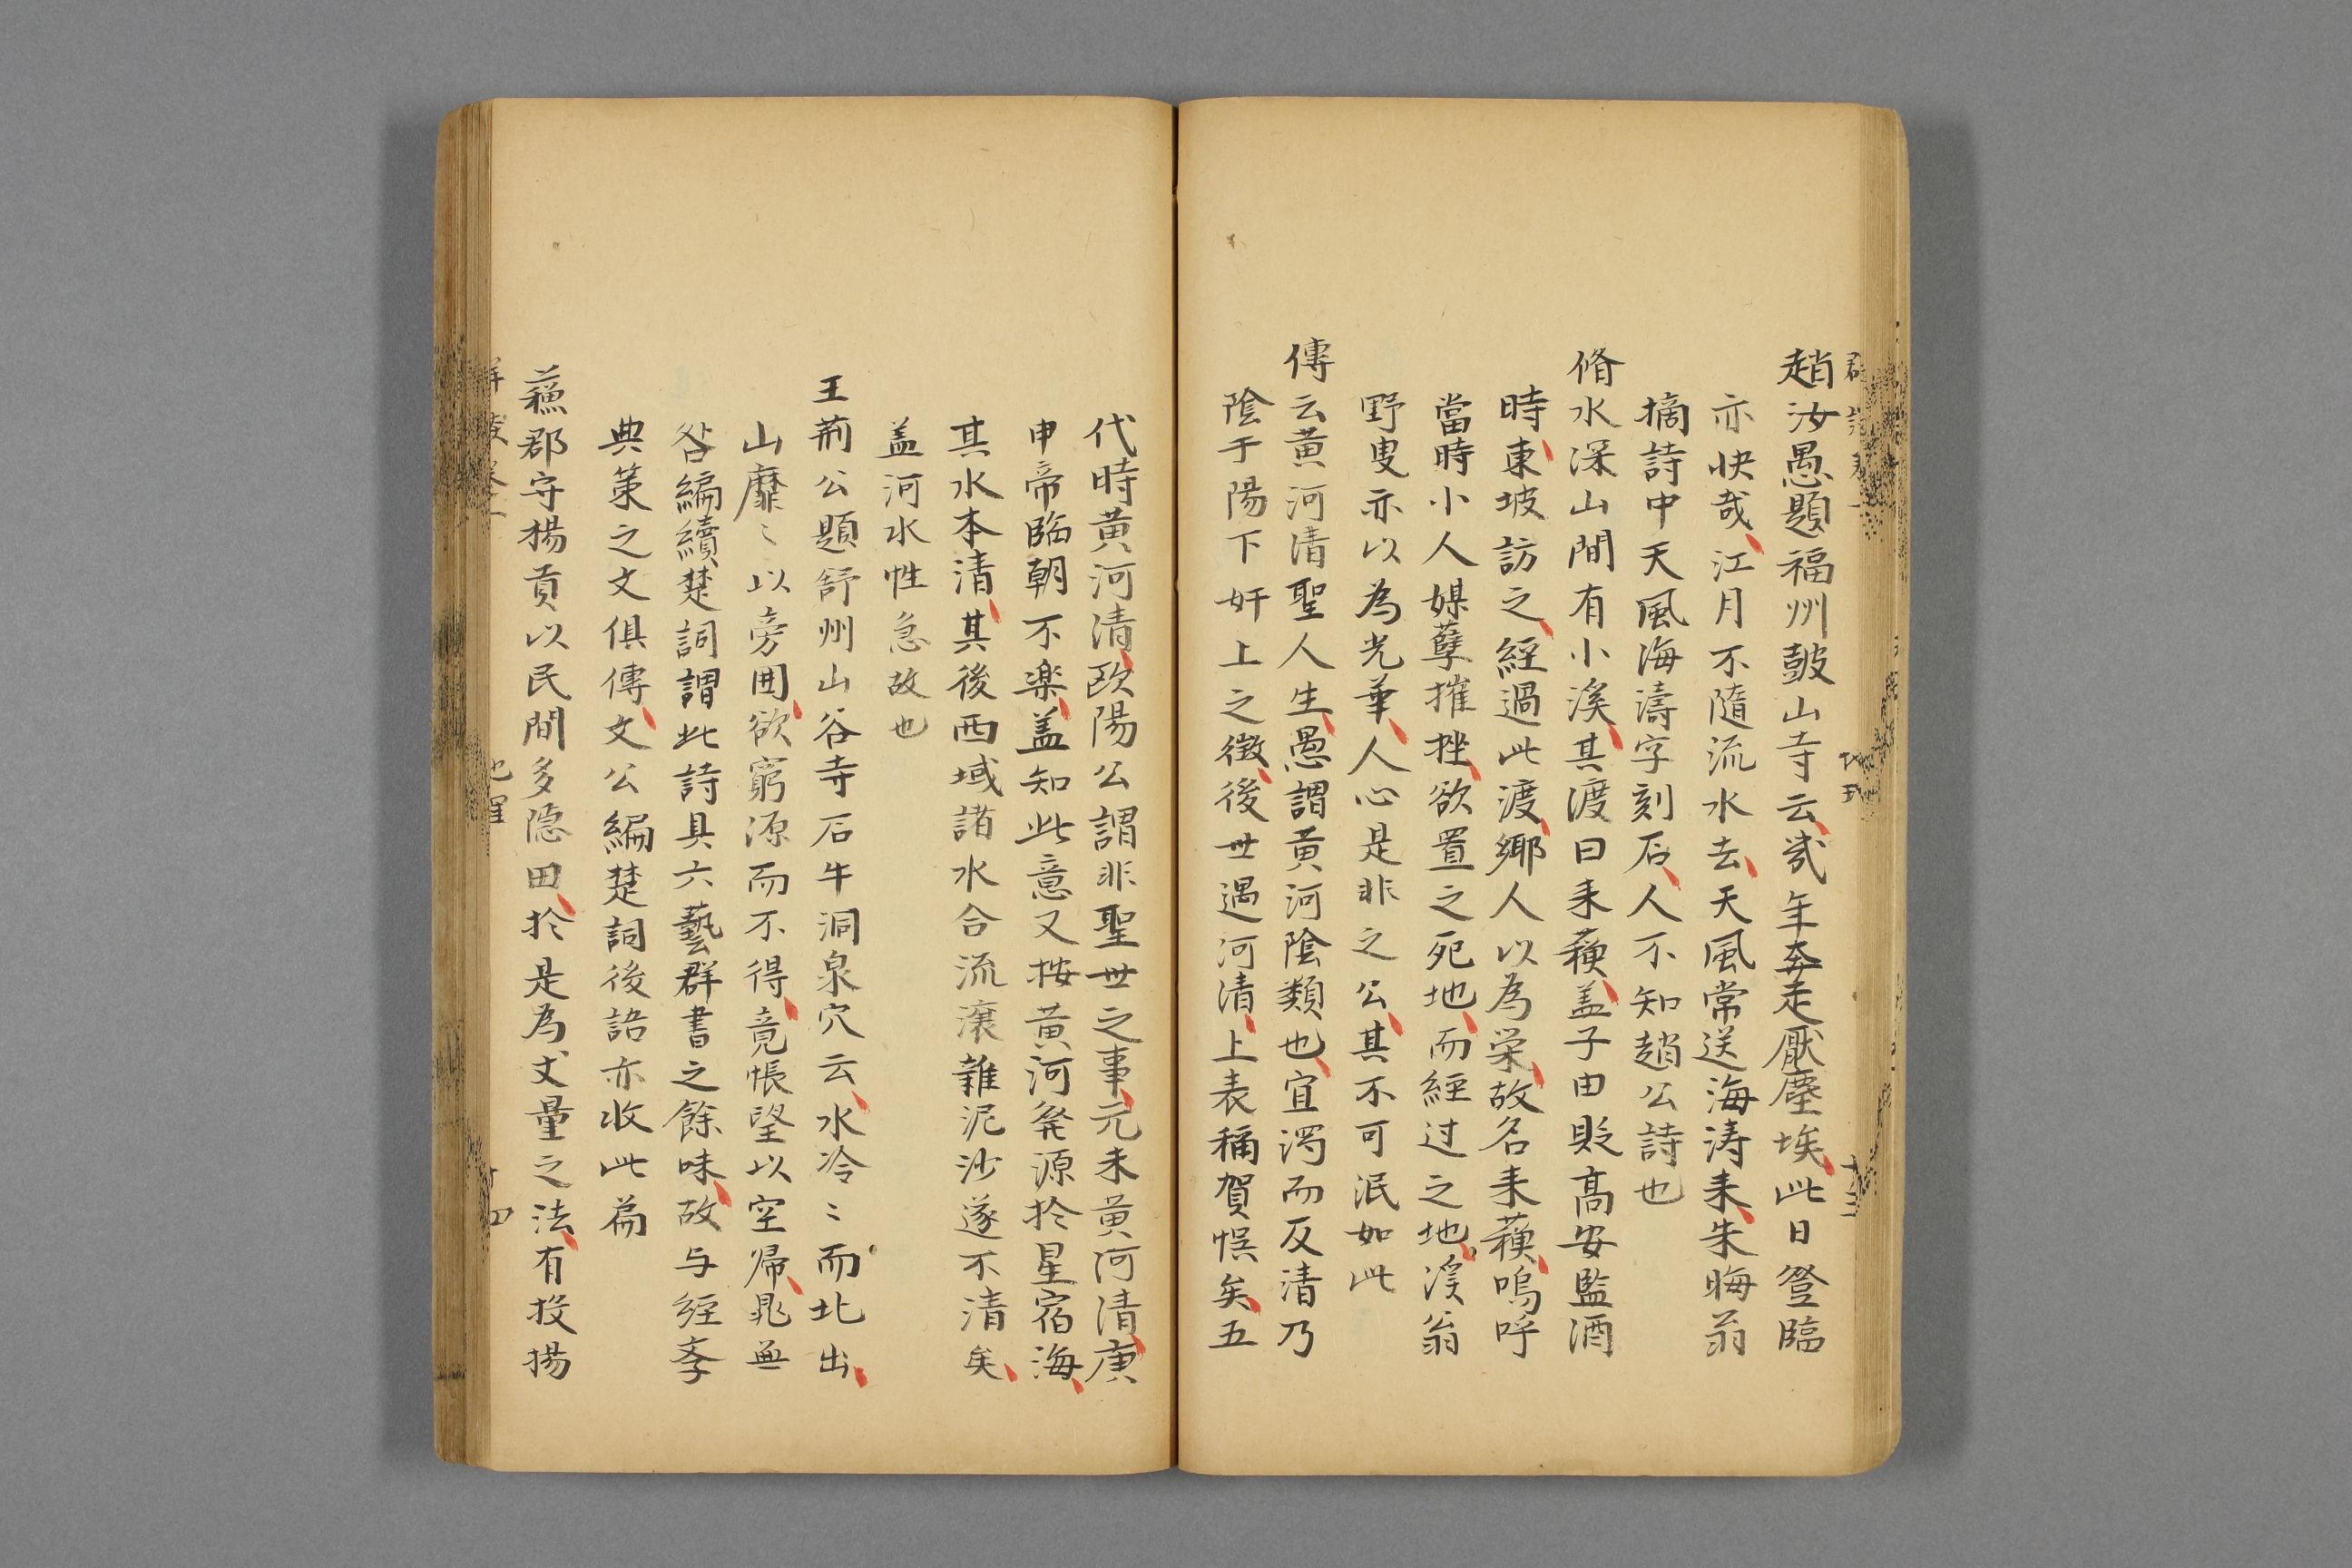 趙汝愚題福州皷山寺云幾年奔走厭塵埃此日登臨
亦快哉江月不隨流水去天風常送海涛来朱晦翁
摘詩中天風海濤字刻石人不知趙公詩也
脩水深山間有小溪其渡曰来蘓盖子由貶高安監酒
時東坡訪之經過此渡鄉人以為栄故名来蘓嗚呼
當時小人媒孽摧挫欲置之死地而經过之地溪翁
野叟亦以為光華人心是非之公其不可泯如此
傳云黃河清聖人生愚謂黃河陰類也宜濁而反清乃
陰干陽下奸上之徵後世遇河清上表稱賀悮矣五
代時黃河清欧陽公謂非聖世之事元末黃河清庚
申帝臨朝不楽盖知此意又按黃河発源扵星宿海
其水本清其後西域諸水合流滚雜泥沙遂不清矣
盖河水性急故也
王荊公題舒州山谷寺石牛洞泉穴云水冷〻而北出
山靡〻以旁囲欲窮源而不得竟悵望以空帰晁無
咎編續楚詞謂此詩具六藝群書之餘味故与經斈
典策之文俱傳文公編楚詞後語亦收此篇
蘓郡守楊貢以民間多隐田扵是為丈量之法有投揚